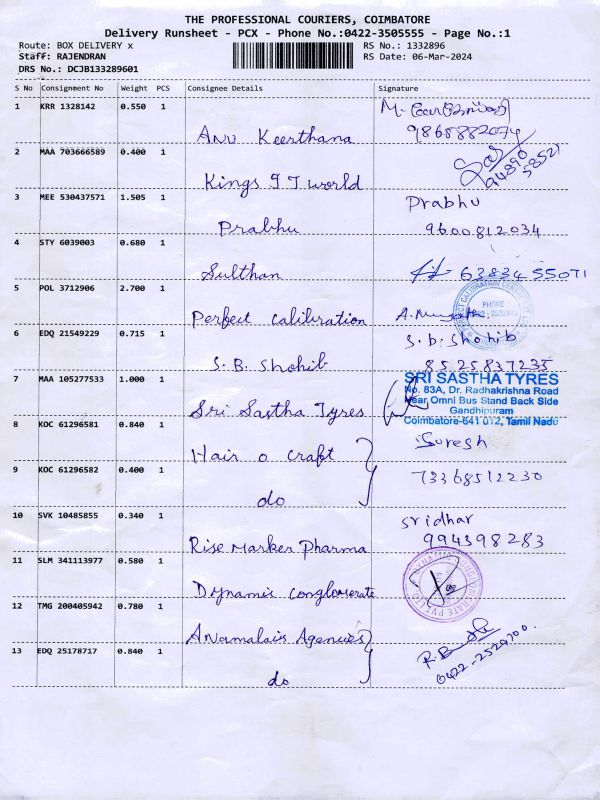 THE PROFESSIONAL COURIERS, COIMBATORE
Delivery Runsheet - PCX - Phone No.:0422-3505555 - Page No.:1
Route: BOX DELIVERY x RS No.: 1332896
Staff: RAJENDRAN RS Date: 06-Mar-2024
DRS No.: DCJB133289601
S No Consignment No Weight PCS Consignee Details Signature
1 KRR 1328142 0.550 1 M.
Anu Keerthana 9865882074
2 MAA 703666589 0.400 1
Kings I T world 94890 58521
3 MEE 530437571 1.505 1 Prabhu
Prabhu 9600812034
4 STY 6039003 0.680 1
Sulthan 63834 55071
5 POL 3712906 2.700 1 PHONE
Perfect calibration A.
6 EDQ 21549229 0.715 1 S.b.Shohib
S.B. Shohib 8525837235
7 MAA 105277533 1.000 1 SRI SASTHA TYRES
No. 83A, Dr. Radhakrishna Road
Near Omni Bus Stand Back Side
Gandhipuram
Sri Sastha Tyres Coimbatore-641 012, Tamil Nadu
8 KOC 61296581 0.840 1 Suresh
Hair o craft
9 KOC 61296582 0.400 1 73368512230
do
10 SVK 10485855 0.340 1 Sridhar
Rise Marker Pharma 994398283
11 SLM 341113977 0.580 1
Dynamis conglomerate
12 TMG 200405942 0.780 1
Annamalais Agencies
13 EDQ 25178717 0.840 1 0422-2524700.
do